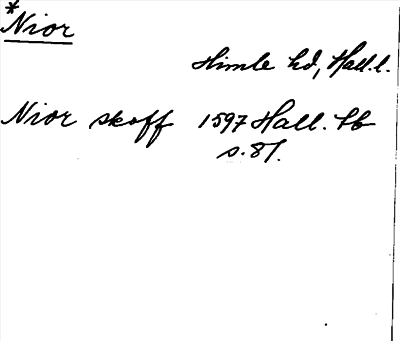 *Nior
Himle hd, Hall.l.
Nior skoff 1597 Hall. tb
s. 87.